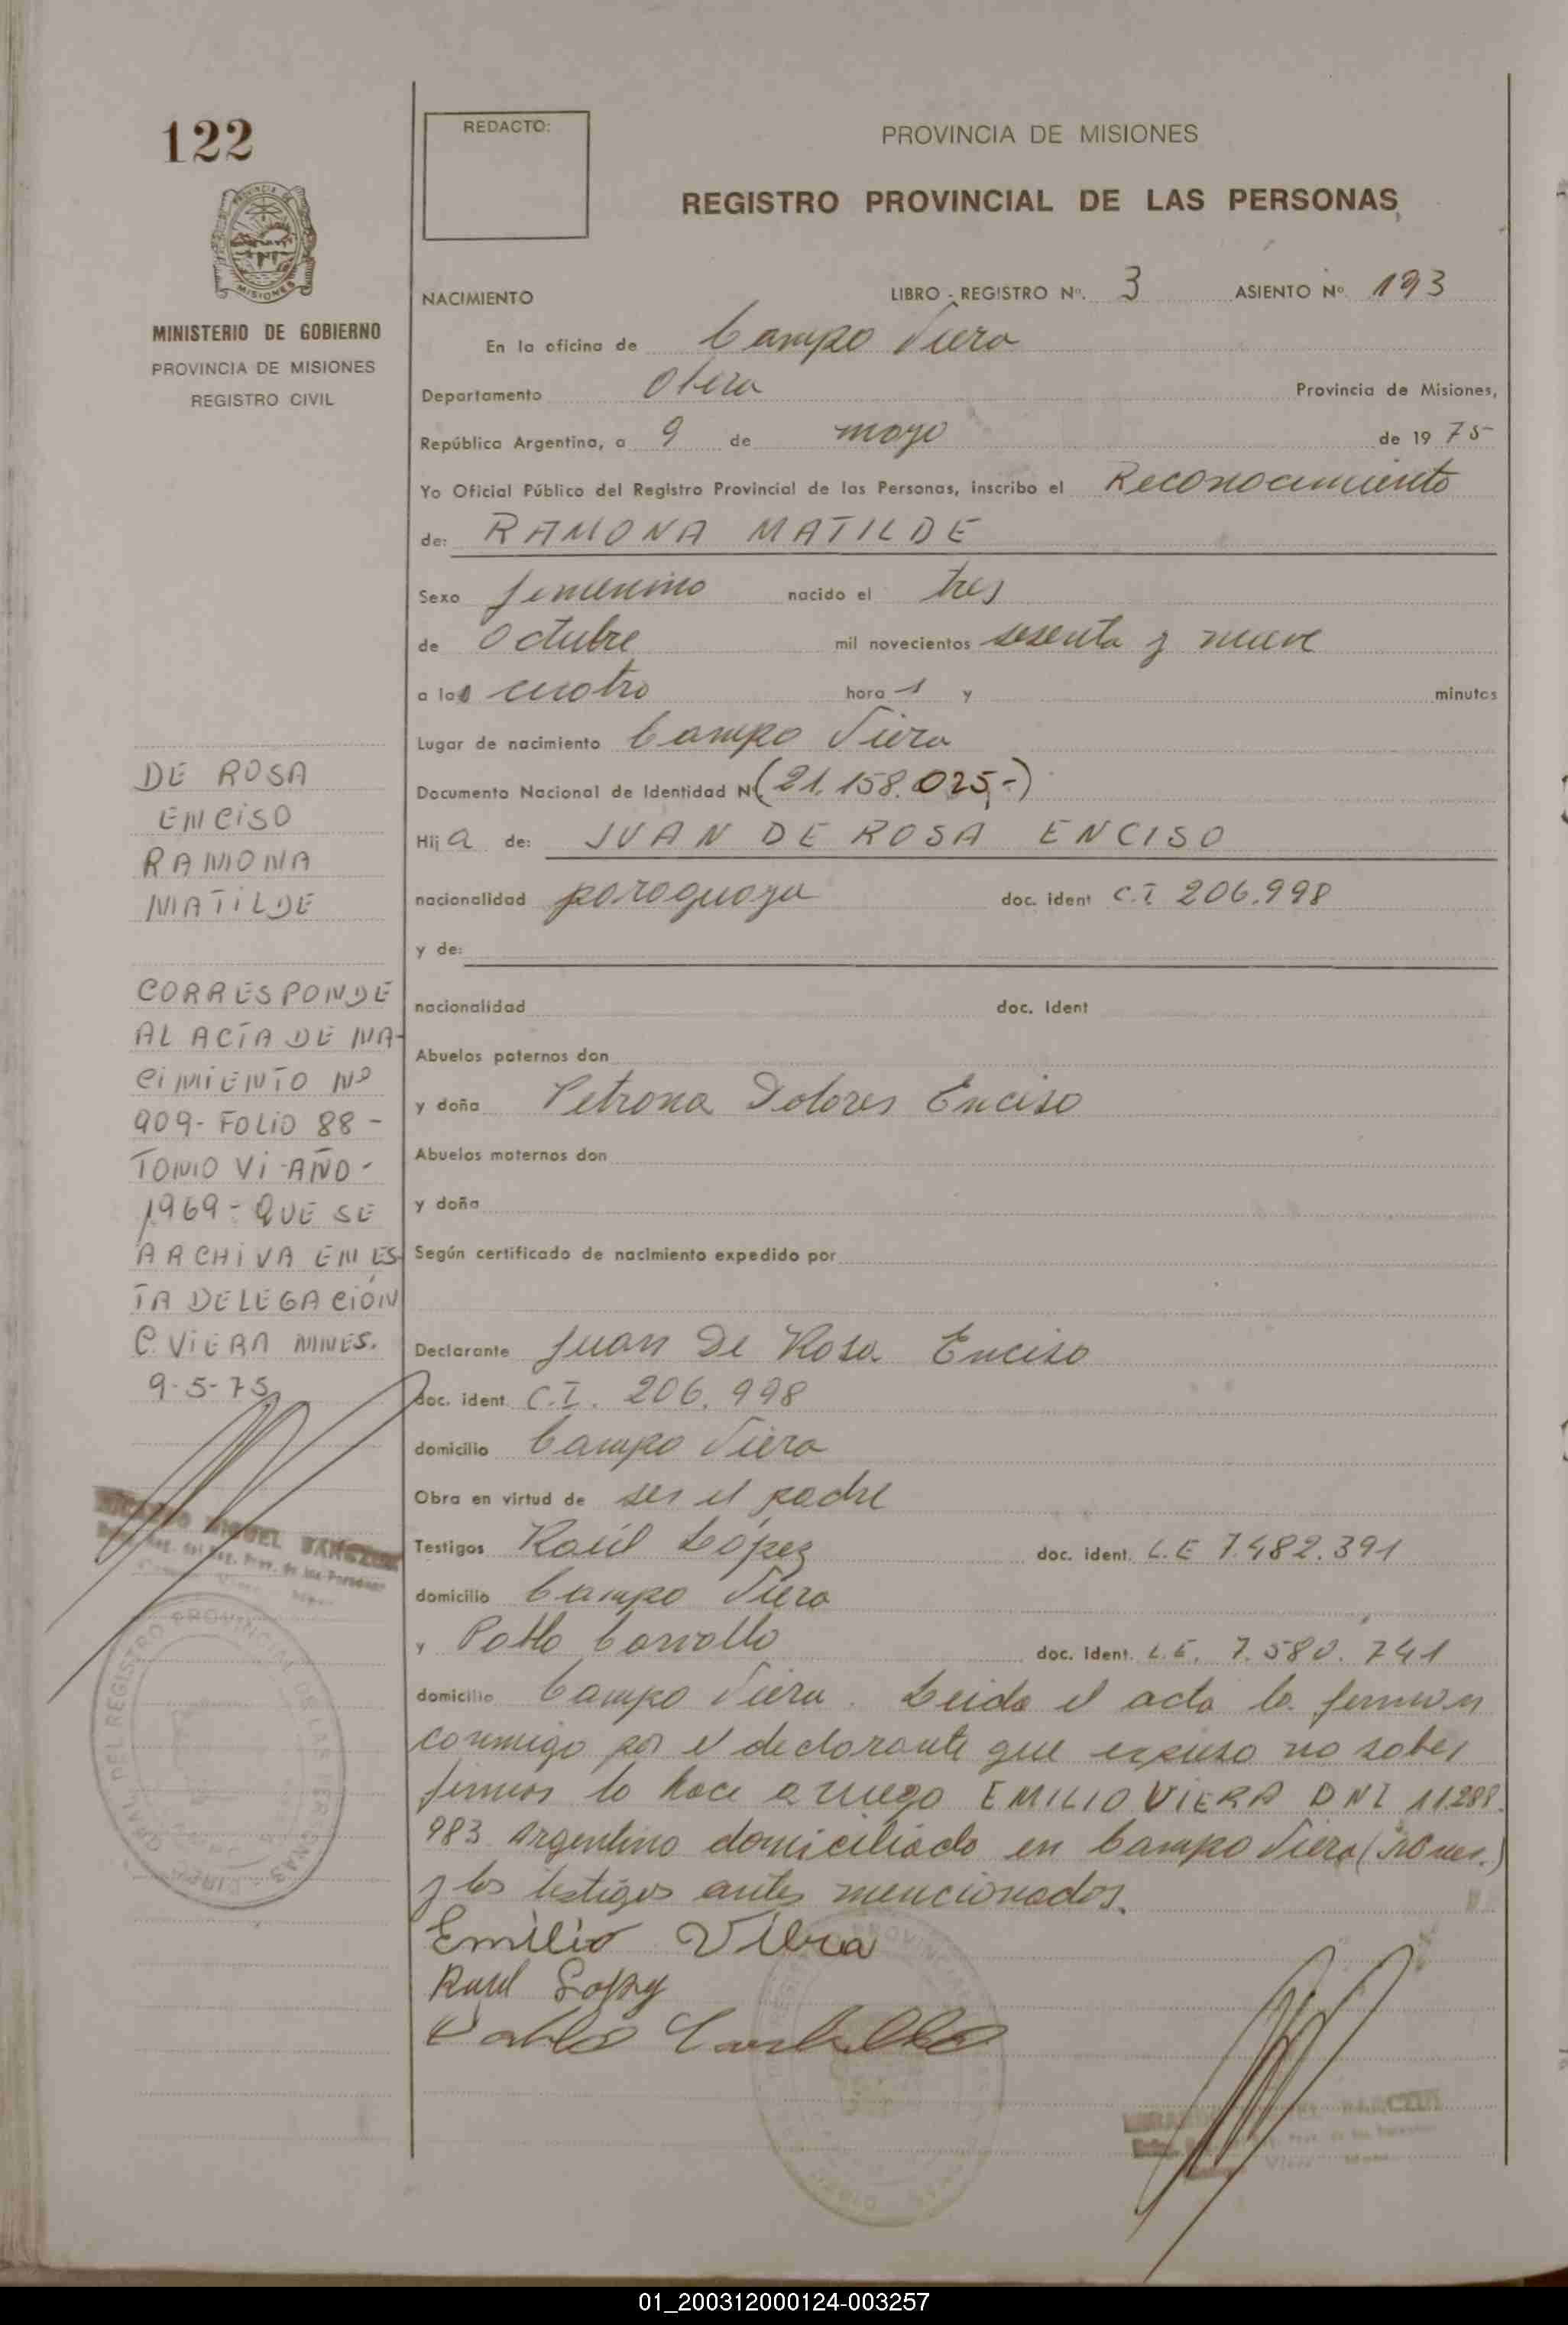 122
PROVINCIA DE MISIONES
MINISTERIO DE GOBIERNO
PROVINCIA DE MISIONES
REGISTRO CIVIL
DE ROSA
ENCISO
RAMONA
MATILDE
CORRESPONDE
AL ACTA DE NA-
CIMIENTO Nº
909- FOLIO 88 -
TOMO VI -AÑO-
1969- QUE SE
ARCHIVA EN ES-
TA DELEGACIÓN
C. VIERA MNES.
9-5-75
MIGUEL
REDACTO:
PROVINCIA DE MISIONES
REGISTRO PROVINCIAL DE LAS PERSONAS
NACIMIENTO LIBRO - REGISTRO Nº. 3 ASIENTO Nº. 193
En la oficina de Campo Viera
Departamento Obera Provincia de Misiones,
República Argentina, a 9 de mayo de 19 75
Yo Oficial Público del Registro Provincial de las Personas, inscribo el Reconocimiento
de: RAMONA MATILDE
Sexo femenino nacido el tres
de Octubre mil novecientos sesenta y nueve
a las cuatro hora s y minutos
Lugar de nacimiento Campo Viera
Documento Nacional de Identidad N. (21.158.025,-)
Hij a de: JUAN DE ROSA ENCISO
nacionalidad paraguaya doc. ident C.I 206.998
y de:
nacionalidad doc. ident
Abuelos paternos don
y doña Petrona Dolores Enciso
Abuelos maternos don
y doña
Según certificado de nacimiento expedido por
Declarante Juan De Rosa Enciso
doc. ident. C.I. 206.998
domicilio Campo Viera
Obra en virtud de ser el padre
Testigos Raúl López doc. ident. L.E 7.482.391
domicilio Campo Viera
y Pablo Carvallo doc. ident. L.E. 7.580.741
domicilio Campo Viera. Leida el acta la firman
conmigo por el declarante que expuso no saber
firmar lo hace a ruego EMILIO VIERA DNI 11.288.
983 Argentino domiciliado en Campo Viera (Mnes.)
y los testigos antes mencionados.
Emilio Viera
Raul Lopez
Pablo Carballo
01_200312000124-003257